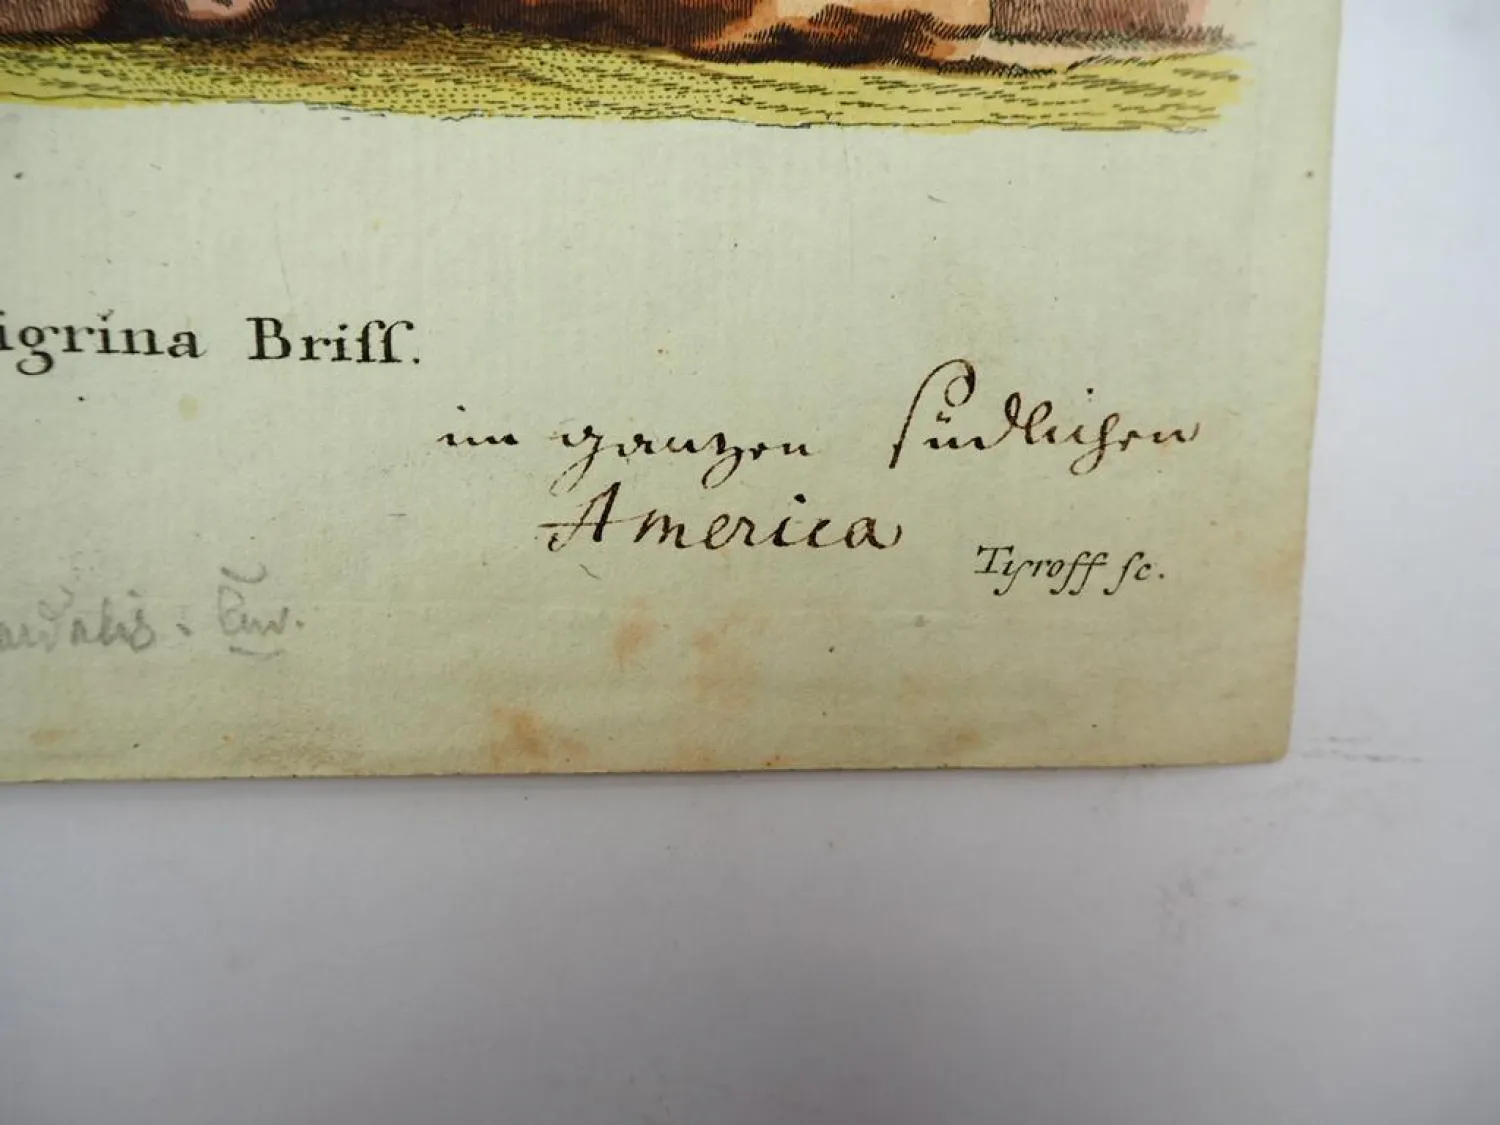 igrina Briſſ.
im ganzen südlichen
America
Tyroff ſc.
ardalis. Lin.